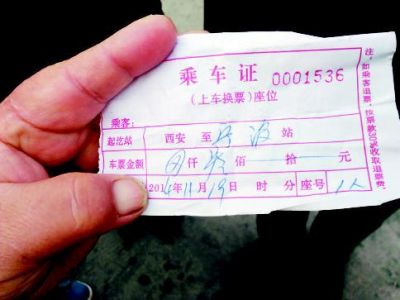 乘车证 0001536
(上车换票)座位
乘客:
起讫站 西安 至 宁波 站
车票金额 仟 佰 拾 元
2014年11月19日 时 分 座号 1人
注:如乘客退票,按票款30%收取退票费